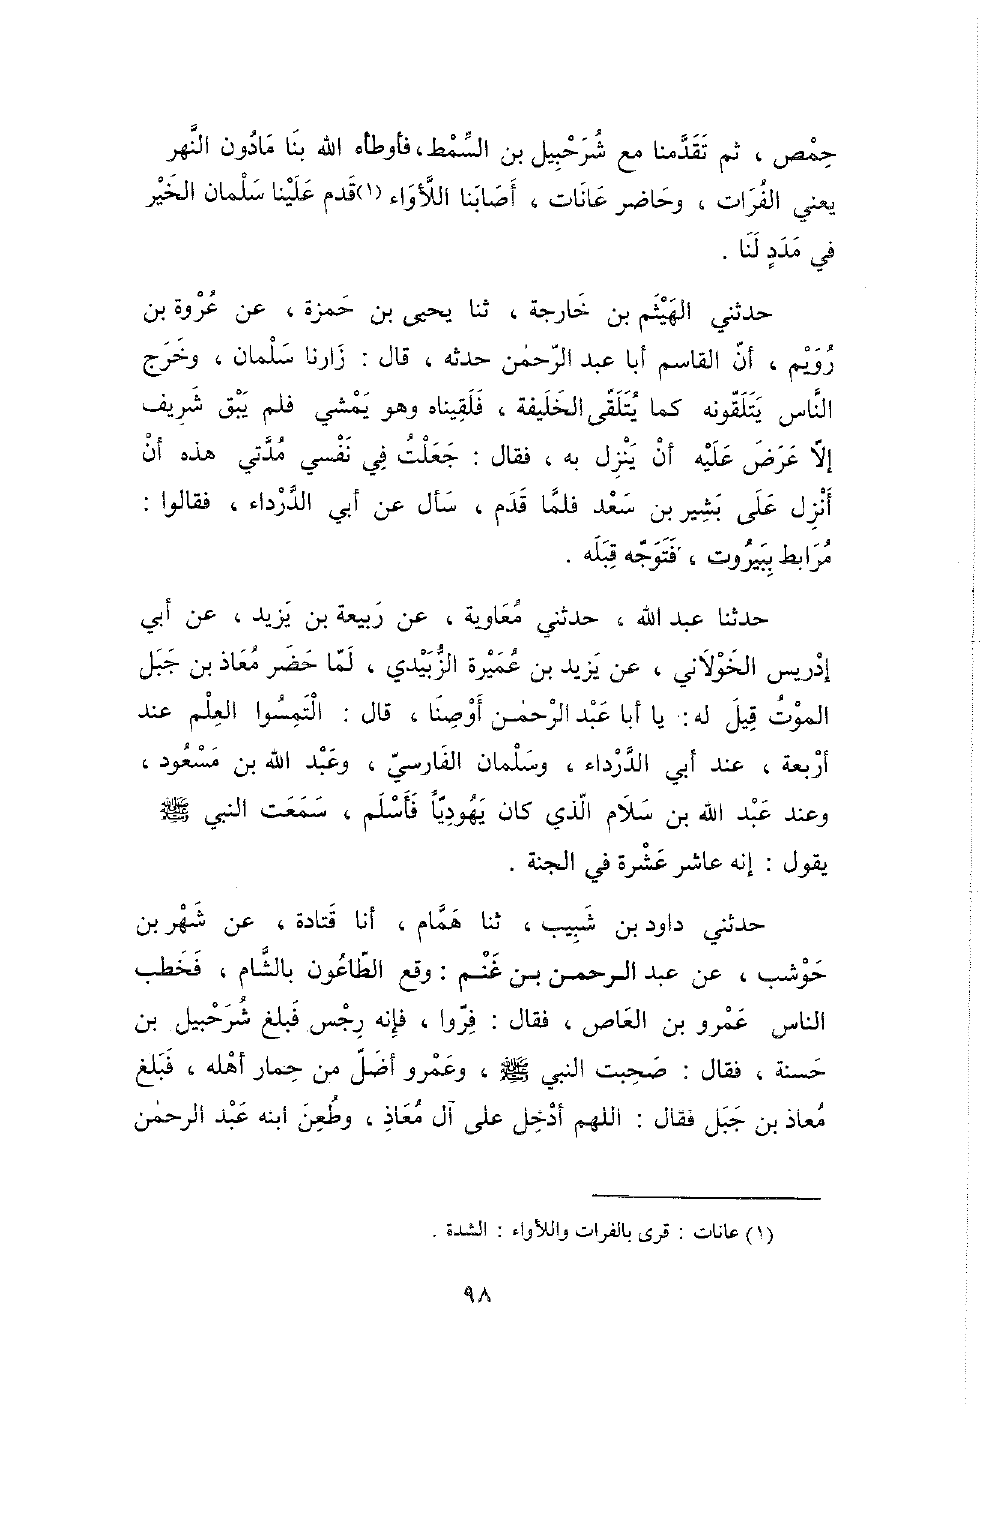 حِمْص ، ثم تَقَدَّمنا مع شُرَحْبِيل بن السِّمْط، فأوطأه الله بنَا مَادُون النَّهر
يعني الفُرَات ، وحَاضر عَانَات ، أَصَابَنا اللَّأوَاء (١) قَدم عَلَيْنا سَلْمان الخَيْر
في مَدَدٍ لَنَا .
حدثني الهَيْثَم بن خَارجة ، ثنا يحيى بن حَمزة ، عن عُرْوة بن
رُوَيْم ، أنّ القاسم أبا عبد الرّحمٰن حدثه ، قال : زَارنا سَلْمان ، وخَرَج
النَّاس يَتَلَقّونه كما يُتَلَقّى الخَلِيفة ، فَلَقِيناه وهو يَمْشي فلم يَبْق شَرِيف
إلاّ عَرَضَ عَلَيْه أنْ يَنْزِل به ، فقال : جَعَلْتُ فِي نَفْسي مُدَّتي هذه أنْ
أَنْزِل عَلَى بَشِير بن سَعْد فلمَّا قَدَم ، سَأل عن أبي الدَّرْداء ، فقالوا :
مُرَابط بِبَيرُوت ، فَتَوَجّه قِبَلَه .
حدثنا عبد الله ، حدثني مُعَاوية ، عن رَبيعة بن يَزيد ، عن أبي
إدْريس الخَوْلاَني ، عن يَزيد بن عُمَيْرة الزُّبَيْدي ، لَمّا حَضَر مُعَاذ بن جَبَل
الموْتُ قِيلَ له : يا أبا عَبْد الرْحمٰن أَوْصِنَا ، قال : الْتَمِسُوا العِلْم عند
أرْبعة ، عند أبي الدَّرْداء ، وسَلْمان الفَارسيّ ، وعَبْد الله بن مَسْعُود ،
وعند عَبْد الله بن سَلَام الّذي كان يَهُودِيّاً فَأَسْلَم ، سَمَعَت النبي ﷺ
يقول : إنه عاشر عَشْرة في الجنة .
حدثني داود بن شَبِيب ، ثنا هَمَّام ، أنا قَتادة ، عن شَهْر بن
حَوْشب ، عن عبد الرحمن بن غَنْم : وقع الطّاعُون بالشَّام ، فَخَطب
الناس عَمْرو بن العَاص ، فقال : فِرّوا ، فإنه رِجْس فَبلغ شُرَحْبيل بن
حَسنة ، فقال : صَحِبت النبي ﷺ ، وعَمْرو أضَلّ من حِمار أهْله ، فَبَلغ
مُعاذ بن جَبَل فقال : اللهم أدْخِل على آل مُعَاذِ ، وطُعِنَ ابنه عَبْد الرحمٰن
(١) عانات : قرى بالفرات واللأواء : الشدة .
٩٨